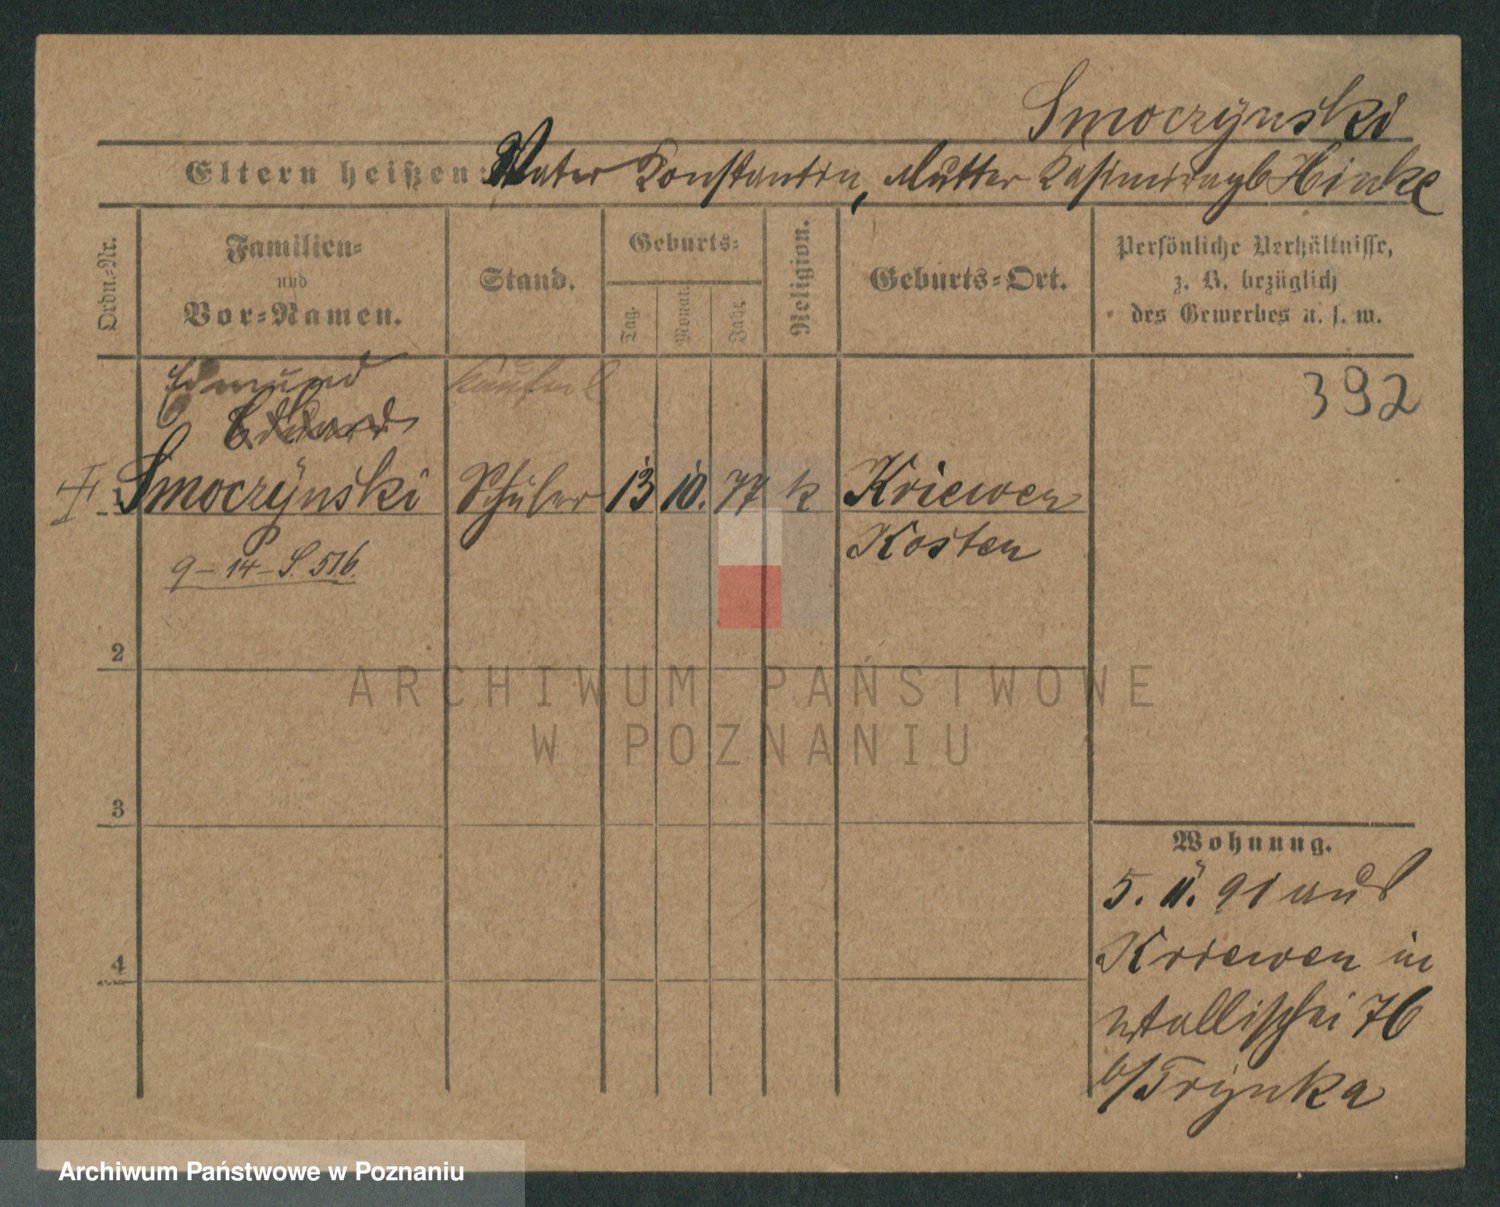 Smoczyński
Eltern heißen: Vater Konstantin, Mutter Kasimira gb Hinke
Ordn.-Nr.
Familien-
und
Vor-Namen.
Stand.
Geburts-
Tag.
Monat.
Jahr.
Religion.
Geburts-Ort.
Persönliche Verhältnisse,
z. B. bezüglich
des Gewerbes u. s. w.
Edmund
Eduard
392
1 Smoczyński Schüler 13 10. 77 k Kriewen
Kosten
9-14-S. 516.
2
3
4
Wohnung.
5. 11. 91 aus
Kriewen in
Wallischei 76
b/Trynka
ARCHIWUM PAŃSTWOWE
W POZNANIU
Archiwum Państwowe w Poznaniu